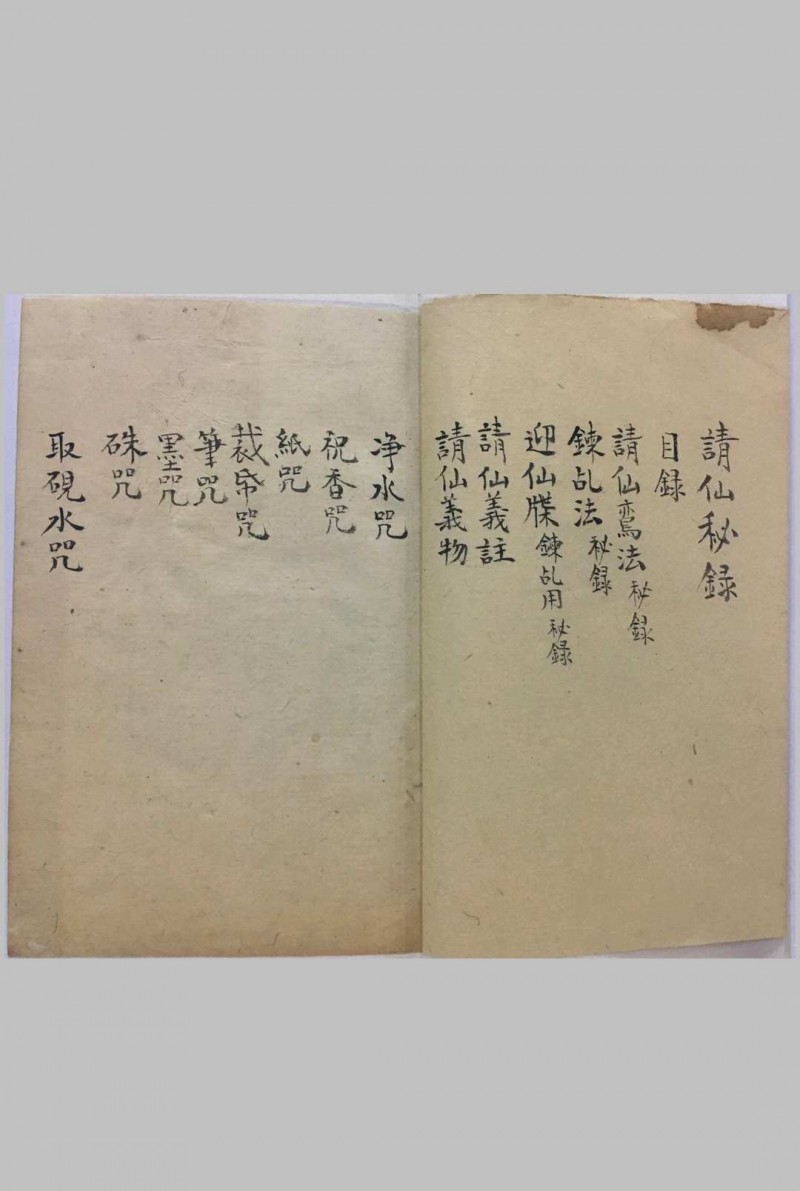 請仙秘録
目録
請仙鸞法 秘録
鍊乩法 秘録
迎仙牒 鍊乩用 秘録
請仙義註
請仙義物
净水咒
祝香咒
紙咒
裁帋咒
筆咒
墨咒
硃咒
取硯水咒